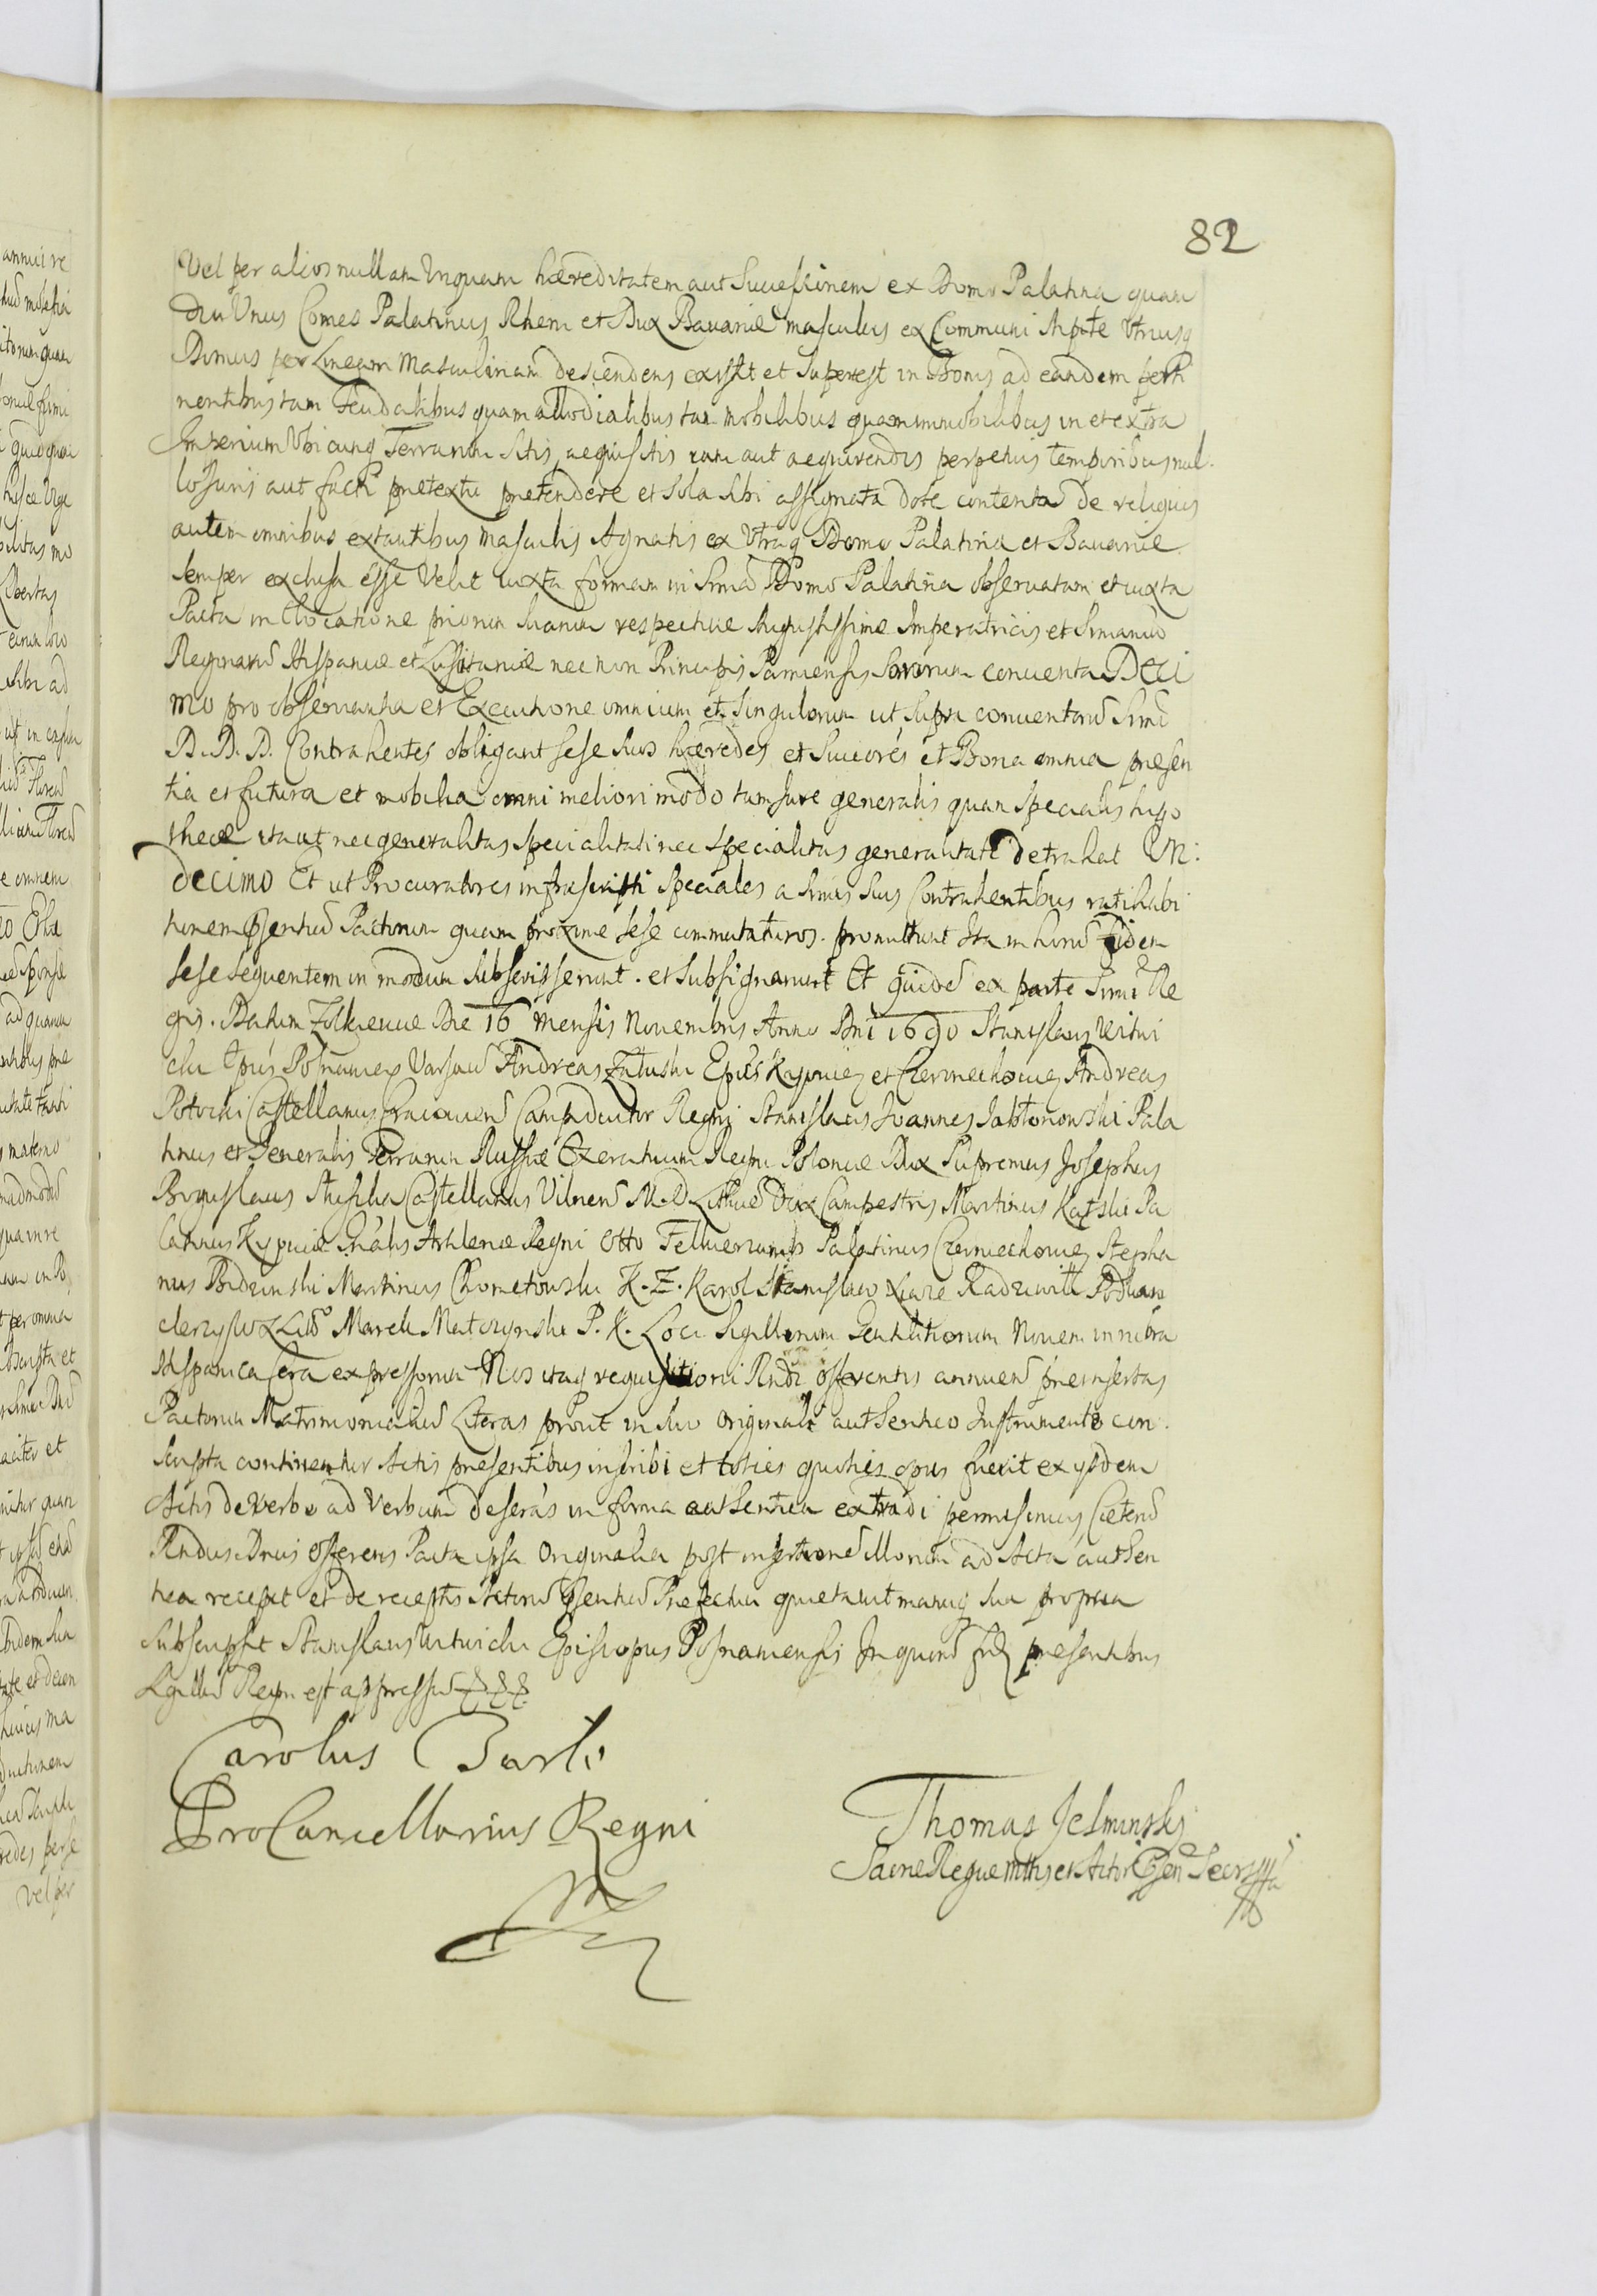 82
Vel per alios nullam Unquam hæreditatem aut Successionem ex Domo Palatina quam
diu Unus Comes Palatinus Rheni et Dux Bavariæ masculus ex Communi stipite Utriusq
Domus per Lineam Masculinam descendens existit et superest in Bonis ad eandem perti
nentibus tam Feudalibus quam allodialibus tam mobilibus quam immobilibus in et extra
Imperium Ubicunq Terrarum sitis, aequisitis iam aut aequirendis perpetuis temporibus nul
lo Juris aut facti prætextu prætendere et sola sibi assignata dote contenta de reliquis
autem omnibus extantibus masculis Agnatis ex Utraq Domo Palatina et Bavariæ
semper exclusa esse Velit iuxta formam in Srma Domo Palatina observatam et iuxta
Pacta in Elocatione priorum suarum respective Augustissimæ Imperatricis et Srmarum
Reginarum Hispaniæ et Lusitaniæ nec non Principis Parmensis Sororum conventa Deci
mo pro observantia et Executione omnium et singulorum ut supra conventorum Srmi
D. D. D. Contrahentes obligant sese suos hæredes et Succores et Bona omnia præsen
tia et futura et mobilia omni meliori modo tam Jure generalis quam specialis hypo
thecæ ita ut nec generalitas specialitati nec specialitas generalitati detrahat Un:
decimo Et ut Procuratores infrascripti speciales a Srmis suis Contrahentibus ratihabi
tionem pñtium Pactorum quam proxime sese commutaturos promittunt Ita in horum fidem
sese sequentem in modum subscripserunt et subsignarunt Et quidem ex parte Srmi Re
gis. Datum Zolkieviæ Die 16 mensis Novembris Anno Dni 1690 Stanislaus Witwi
cki Epus Posnanien Varsav Andreas Załuski Epus Kijovien et Czerniechovien Andreas
Potocki Castellanus Cracovien Campiductor Regni Stanislaus Joannes Jabłonowski Pala
tinus et Generalis Terrarum Russiæ Exercituum Regni Poloniæ Dux Supremus Josephus
Boguslaus Słuszka Castellanus Vilnen M. D. Lithuæ Dux Campestris Martinus Kątski Pa
latinus Kijoviæ Gnalis Artileriæ Regni Otto Felkierzamb Palatinus Czerniechovien Stepha
nus Bidzinski Martinus Chometowski K. Z. Karol Stanislaw Xiąże Radziwiłł Podkan
clerzy W X Lit Marek Matczynski P. K. Loci Sigillorum Gentilitiorum Novem in rubra
Hispanica Cera expressorum Nos itaq requisitioni Rndi Offerentis annuen præinsertas
Pactorum Matrimonialium Literas prout in suo Originali authentico Instrumento con
scripta continentur Actis præsentibus inscribi et toties quoties opus fuerit ex ijsdem
Actis de Verbo ad Verbum deseras in forma authentica extradi permisimus Cæterum
Rndus Dnus Offerens Pacta ipsa Originalia post insertionem illorum ad Acta authen
tica recepit et de receptis Actorum pñtium Præfectum quietavit manuq sua propria
subscripsit Stanislaus Witwicki Episcopus Posnaniensis In quorum fid præsentibus
Sigillum Regni est appressum
Carolus Tarło
ProCancellarius Regni
Thomas Jelminski
Sacræ Regiæ Mttis et Actor Præsen Secr